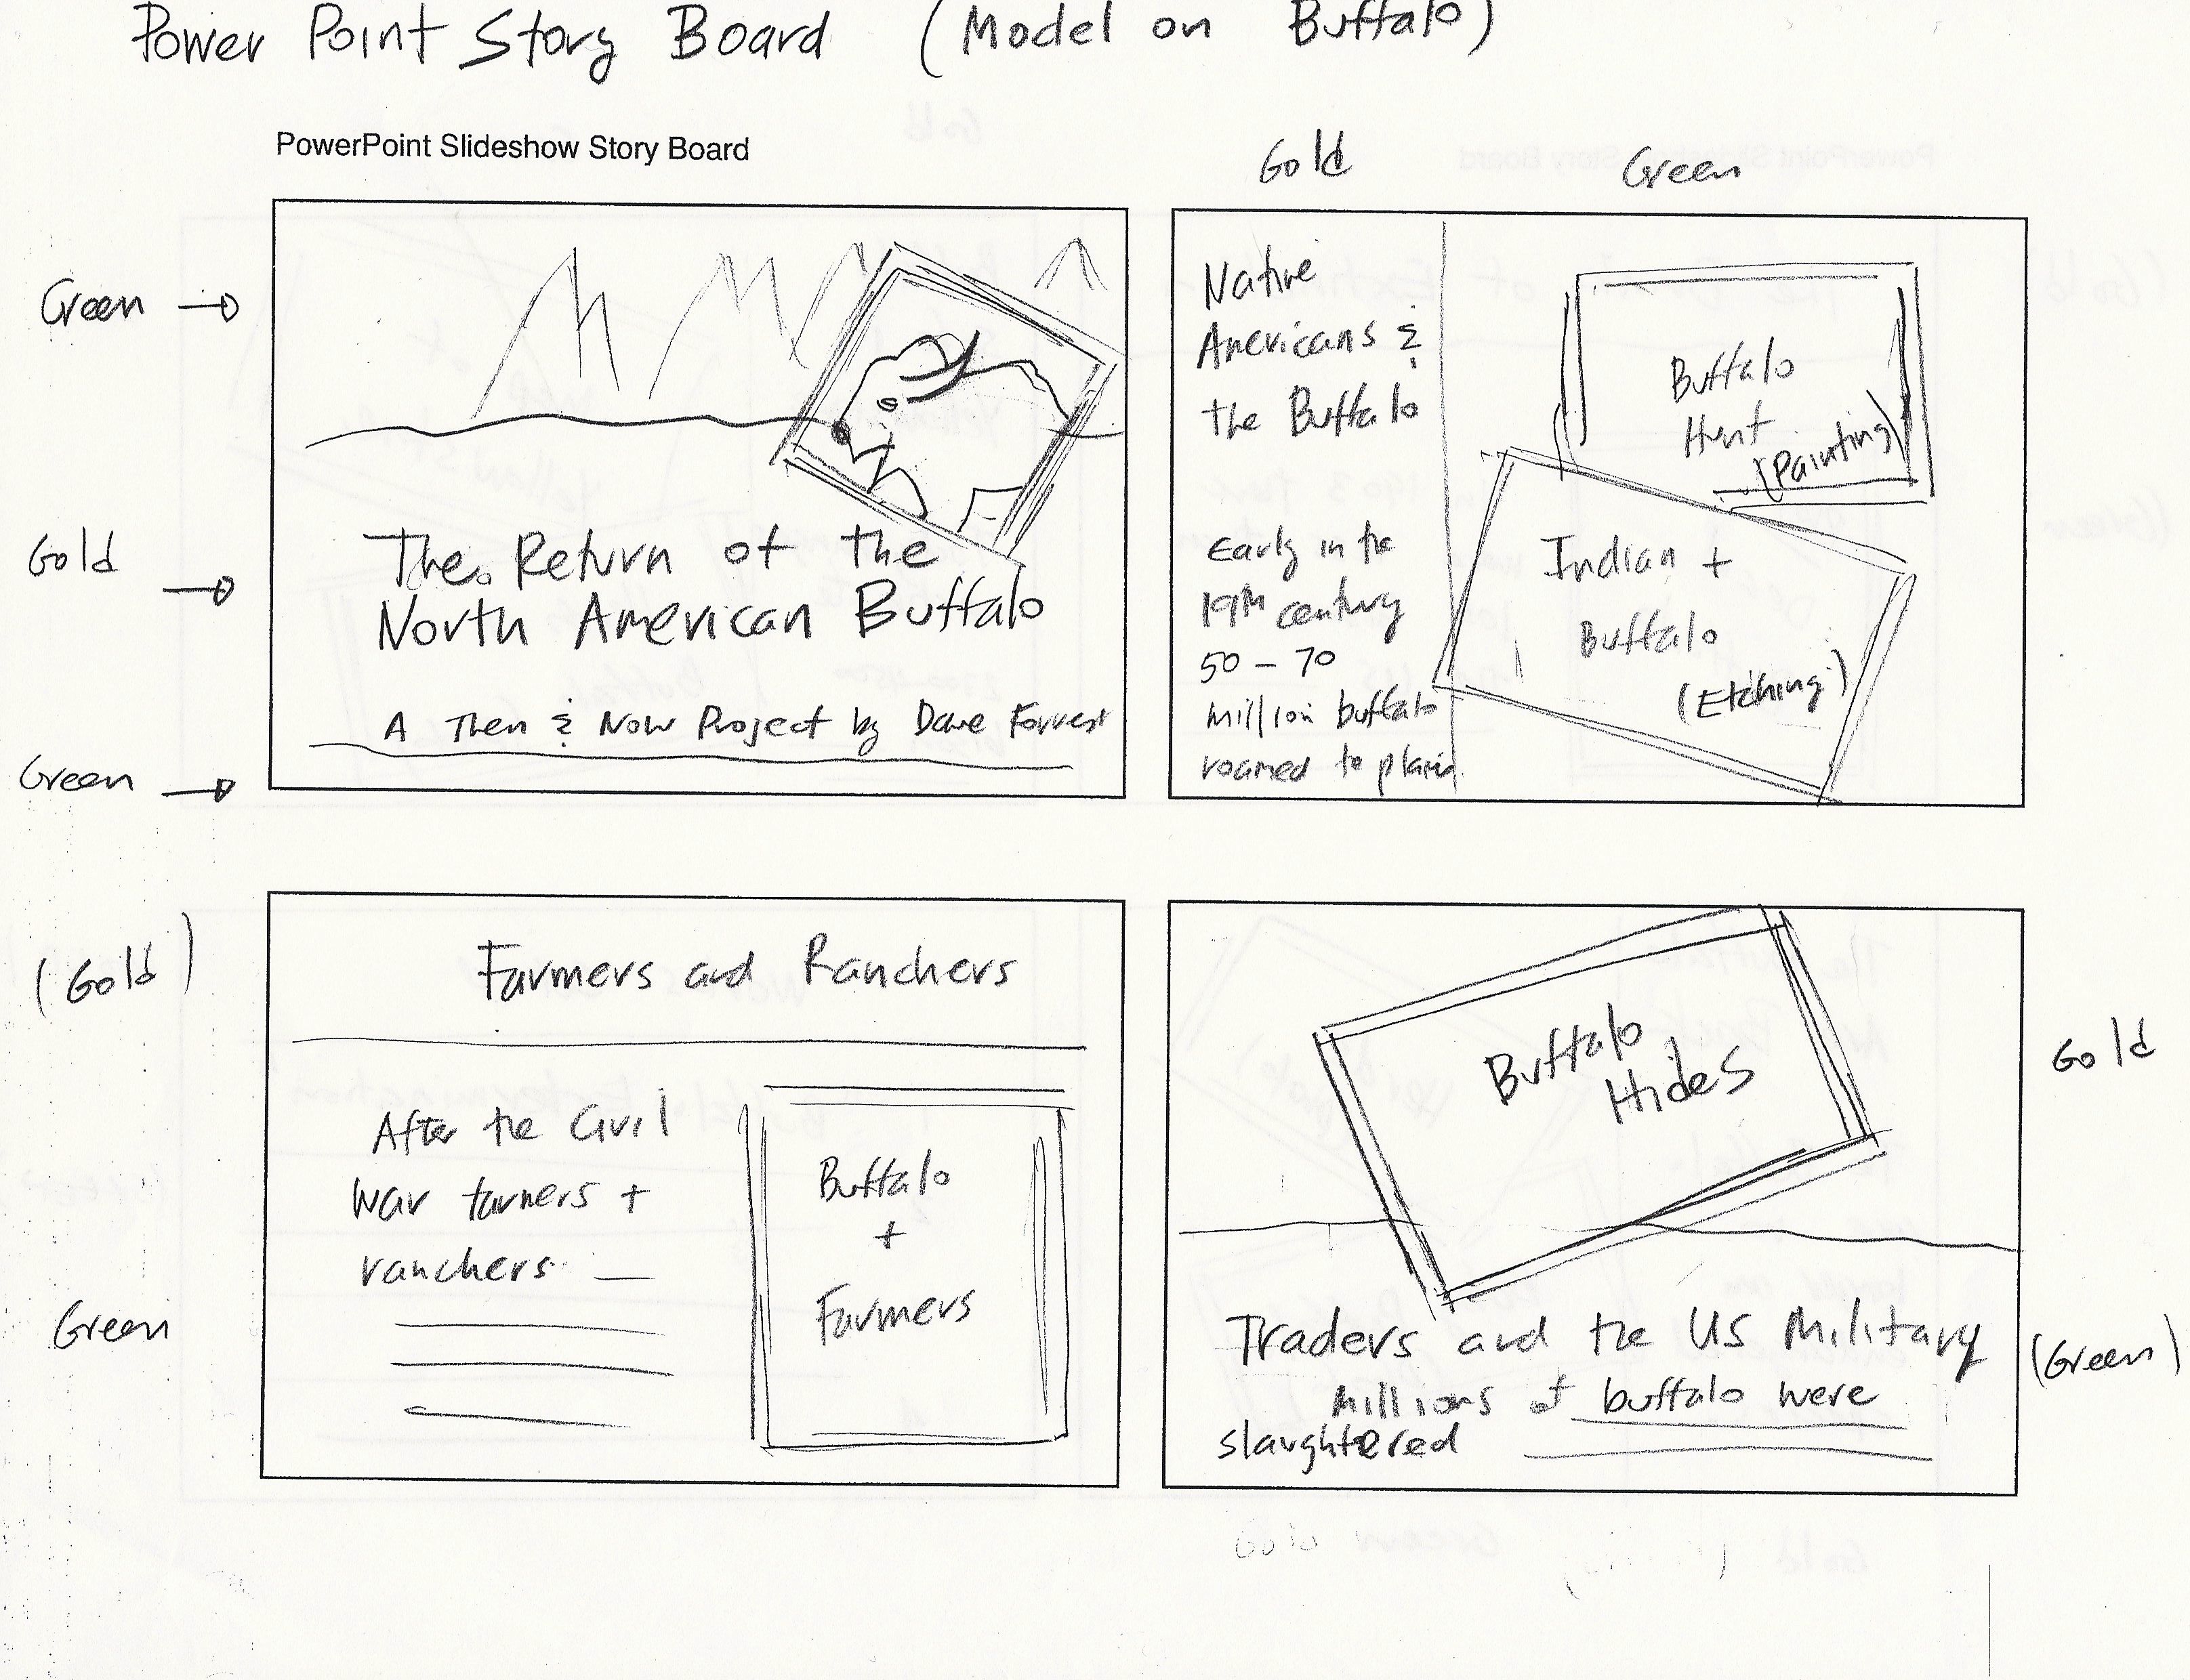 Power Point Story Board (Model on Buffalo)
PowerPoint Slideshow Story Board
Green
Gold
Green
The Return of the
North American Buffalo
A Then & Now Project by Dave Forrest
Gold
Green
Native
Americans &
the Buffalo
Early in the
19th century
50 - 70
million buffalo
roamed the plains
Buffalo
Hunt
(Painting)
Indian +
Buffalo
(Etching)
(Gold)
Green
Farmers and Ranchers
After the Civil
War farmers +
ranchers
Buffalo
+
Farmers
Buffalo
Hides
Traders and the US Military
Millions of buffalo were
slaughtered
Gold
(Green)